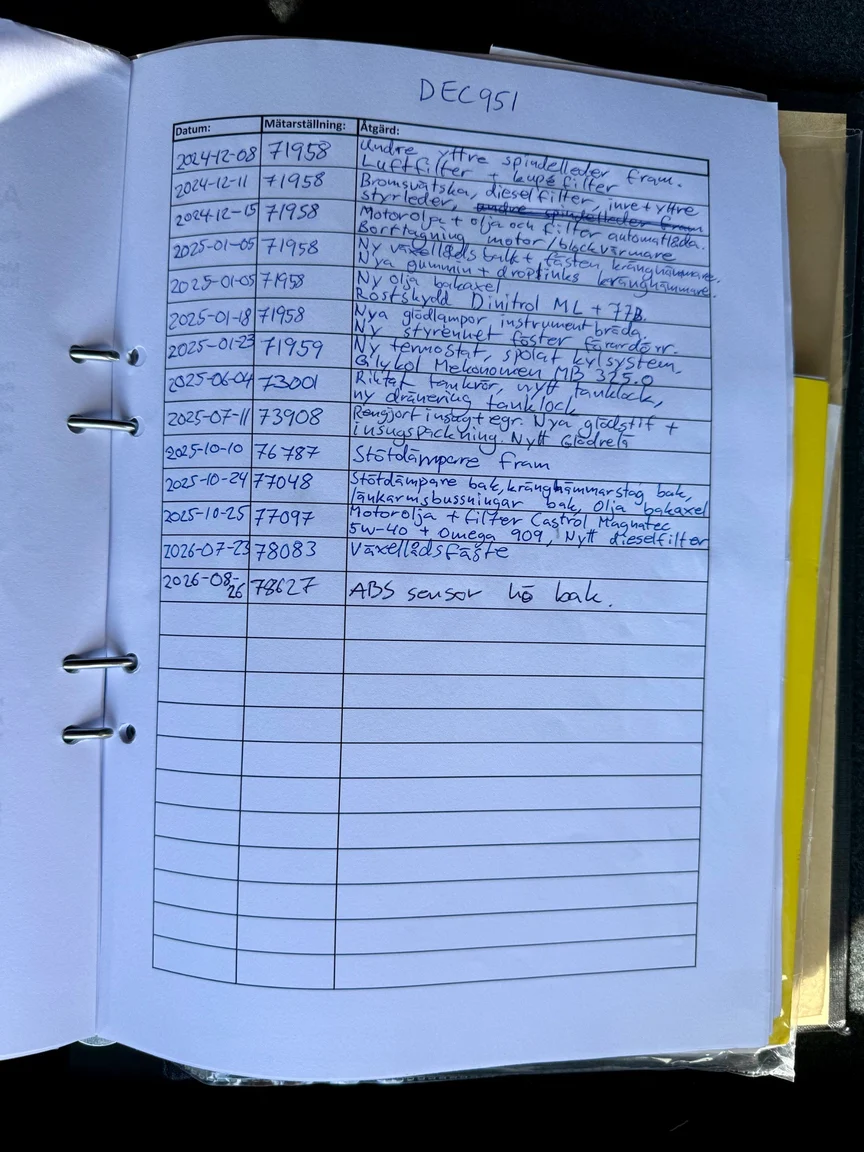 DEC951
Datum: Mätarställning: Åtgärd:
2024-12-08 71958 Undre yttre spindelleder fram.
Luftfilter + kupéfilter
2024-12-11 71958 Bromsvätska, dieselfilter, inre+yttre
styrleder,
2024-12-15 71958 Motorolja + olja och filter automatlåda.
Borttagning motor/blockvärmare
2025-01-05 71958 Ny växellådsbalk + fästen kränghämmare.
Nya gummin + droplinks kränghämmare.
2025-01-05 71958 Ny olja bakaxel
Rostskydd Dinitrol ML + 77B.
2025-01-18 71958 Nya glödlampor, instrumentbräda.
Ny styrenhet föster förardörr.
2025-01-23 71959 Ny termostat, spolat kylsystem,
Glykol Mekonomen MB 325.0
2025-06-04 73001 Riktat tankrör, nytt tanklock,
ny dränering tanklock
2025-07-11 73908 Rengjort insug+egr. Nya glödstift +
insugspackning. Nytt Glödrelä
2025-10-10 76787 Stötdämpare fram
2025-10-24 77048 Stötdämpare bak, kränghämmarstag bak,
länkarmsbussningar bak, Olja bakaxel
2025-10-25 77097 Motorolja + filter Castrol Magnatec
5w-40 + Omega 909, Nytt dieselfilter
2026-07-23 78083 Växellådsfäste
2026-08-26 78627 ABS sensor hö bak.